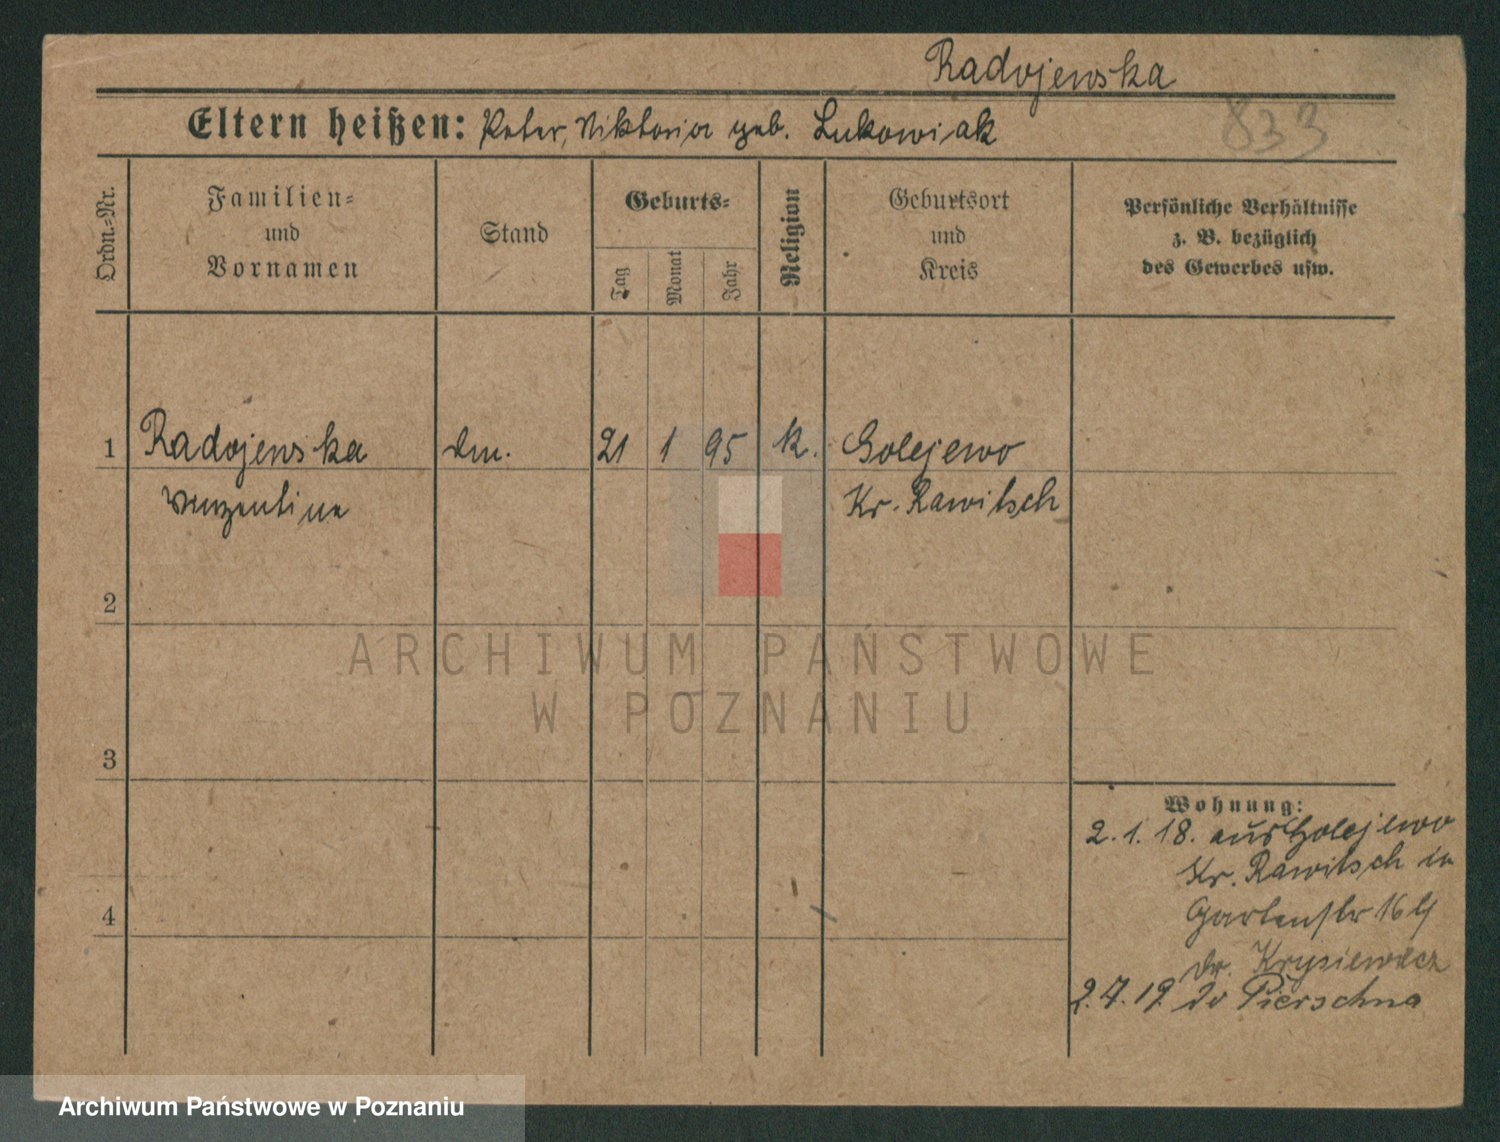 Radojewska
833
Eltern heißen: Peter, Viktoria geb. Lukowiak
Ordn.-Nr.
Familien- und Vornamen
Stand
Geburts-
Tag
Monat
Jahr
Religion
Geburtsort und Kreis
Persönliche Verhältnisse
z. B. bezüglich
des Gewerbes usw.
1 Radojewska dm. 21 1 95 k. Golejewo
Vinzentine Kr. Rawitsch
2
ARCHIWUM PAŃSTWOWE
W POZNANIU
3
Wohnung:
2.1.18. aus Golejewo
Kr. Rawitsch in
Gartenstr 16
4
dr. Krysiewicz
2.7.19 do Pierschna
Archiwum Państwowe w Poznaniu